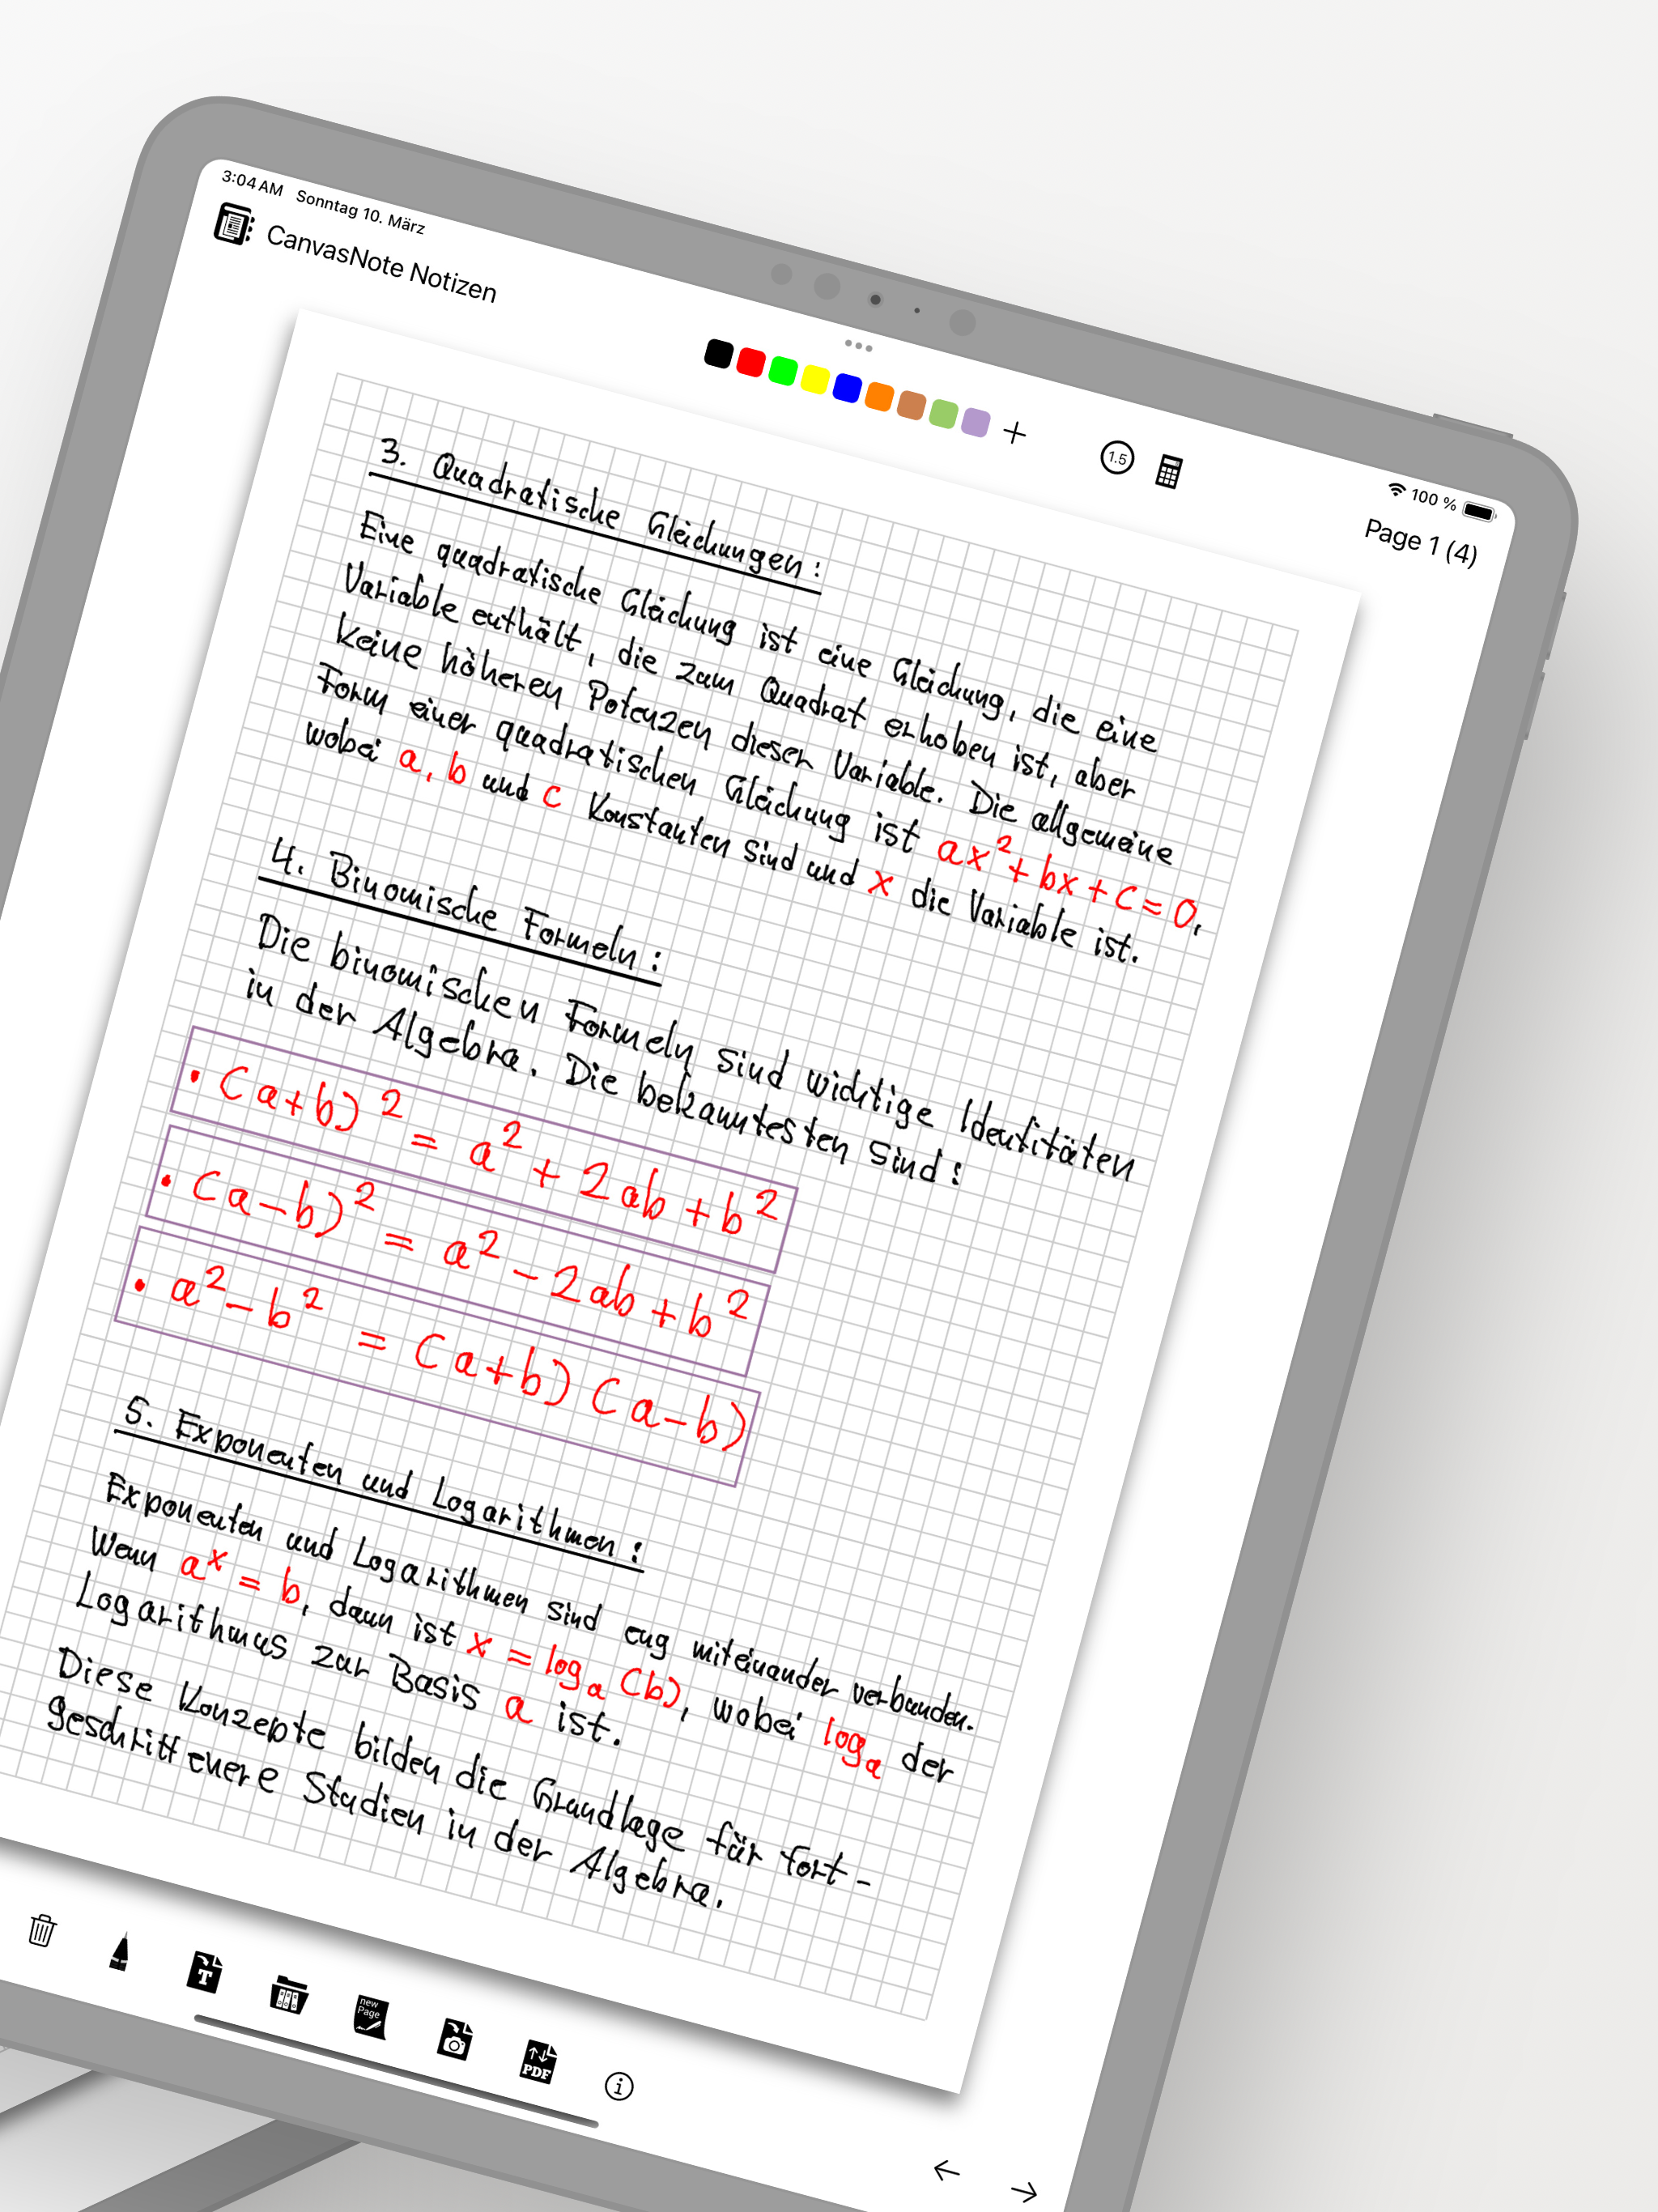 3:04 AM Sonntag 10. März
CanvasNote Notizen
1.5
100 %
Page 1 (4)
3. Quadratische Gleichungen:
Eine quadratische Gleichung ist eine Gleichung, die eine
Variable enthält, die zum Quadrat erhoben ist, aber
keine höheren Potenzen dieser Variable. Die allgemeine
Form einer quadratischen Gleichung ist ax²+bx+c=0,
wobei a, b und c Konstanten sind und x die Variable ist.
4. Binomische Formeln:
Die binomischen Formeln sind wichtige Identitäten
in der Algebra. Die bekanntesten sind:
• (a+b)² = a² + 2ab + b²
• (a-b)² = a² - 2ab + b²
• a² - b² = (a+b) (a-b)
5. Exponenten und Logarithmen:
Exponenten und Logarithmen sind eng miteinander verbunden.
Wenn aˣ = b, dann ist x = logₐ (b), wobei logₐ der
Logarithmus zur Basis a ist.
Diese Konzepte bilden die Grundlage für fort-
geschrittenere Studien in der Algebra.
T
new
Page
PDF
i